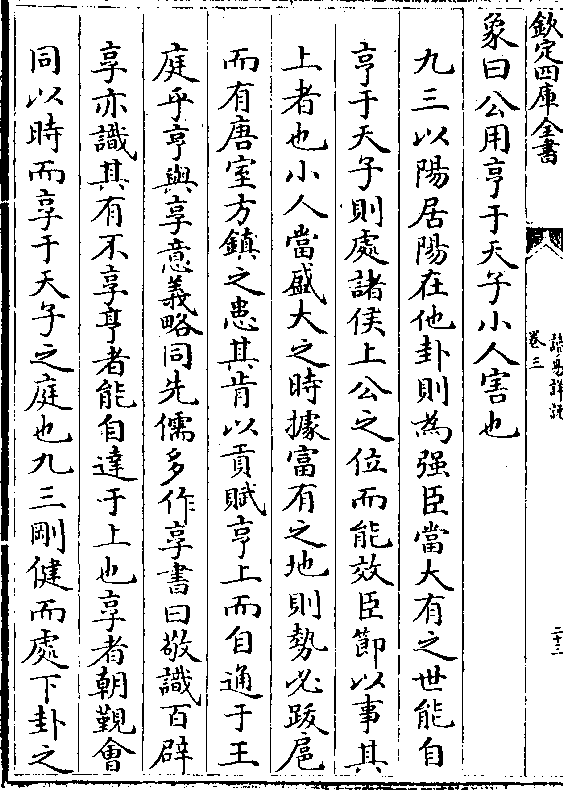 欽定四庫全書
讀易詳說
卷三
二十三
象曰公用亨于天子小人害也
九三以陽居陽在他卦則為强臣當大有之世能自
亨于天子則處諸侯上公之位而能效臣節以事其
上者也小人當盛大之時據富有之地則勢必跋扈
而有唐室方鎮之患其肯以貢賦亨上而自通于王
庭乎亨與享意義略同先儒多作享書曰敬識百辟
享亦識其有不享亨者能自達于上也享者朝覲會
同以時而享于天子之庭也九三剛健而處下卦之